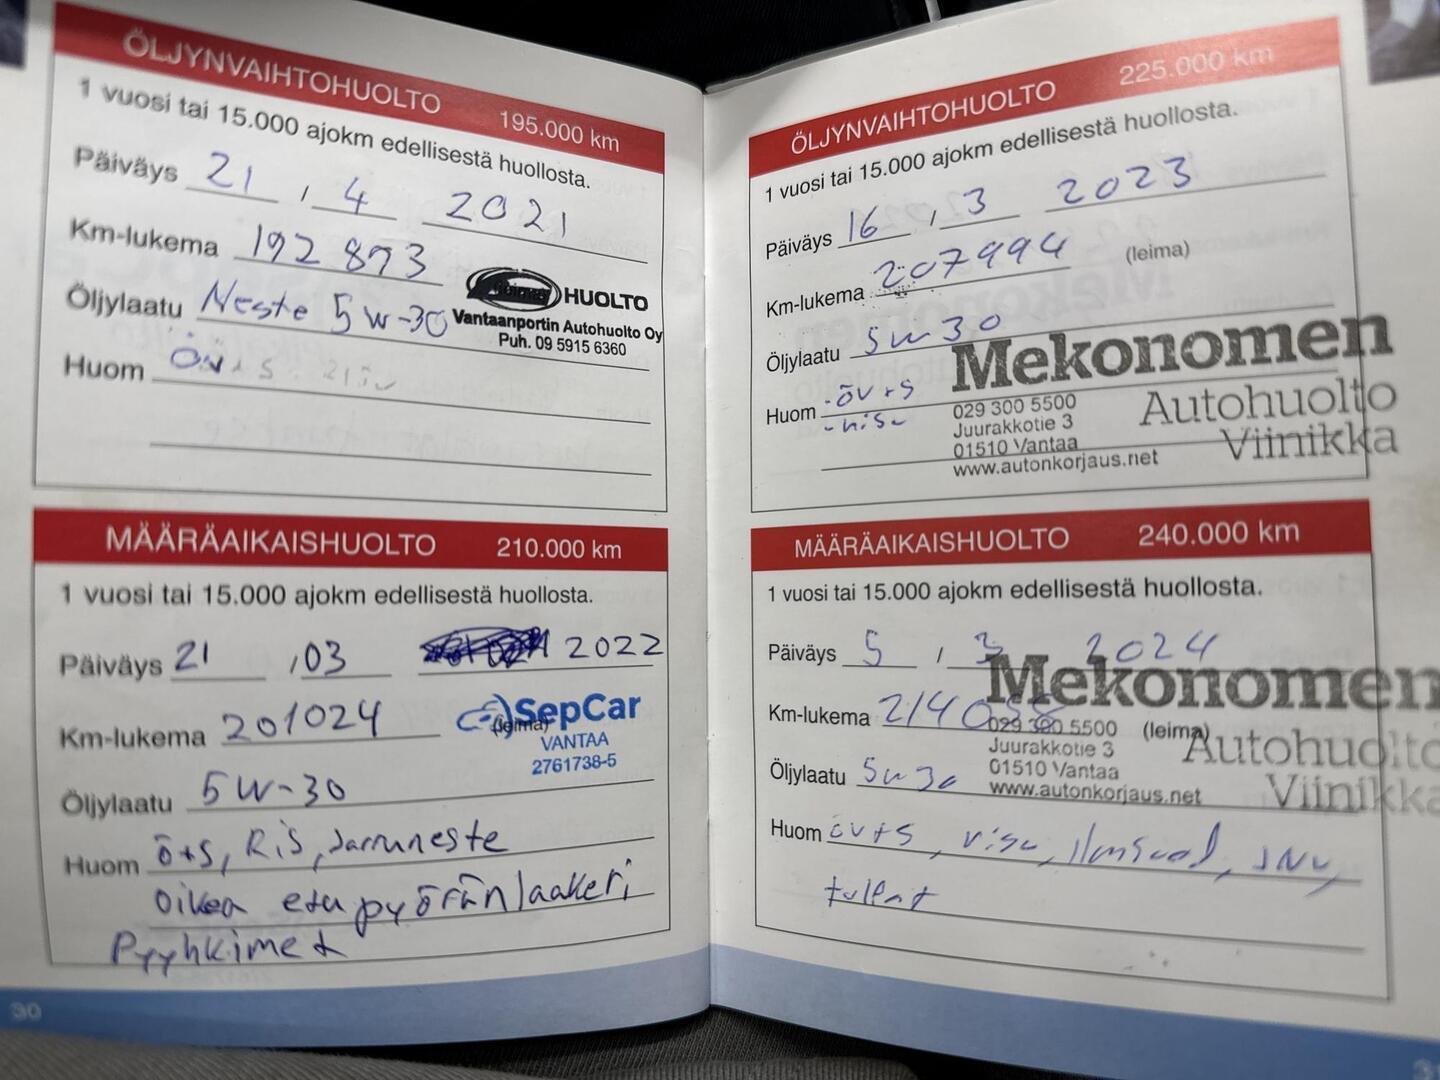 ÖLJYNVAIHTOHUOLTO 195.000 km
1 vuosi tai 15.000 ajokm edellisestä huollosta.
Päiväys 21 / 4 2021
Km-lukema 192 893
Öljylaatu Neste 5W-30
HUOLTO
Vantaanportin Autohuolto Oy
Puh. 09 5915 6360
Huom
MÄÄRÄAIKAISHUOLTO 210.000 km
1 vuosi tai 15.000 ajokm edellisestä huollosta.
Päiväys 21 / 03 2022
Km-lukema 201024 (leima)
SepCar
VANTAA
2761738-5
Öljylaatu 5W-30
Huom ö+s, RiS, Jarruneste
Oikea etupyöränlaakeri
Pyyhkimet
30
ÖLJYNVAIHTOHUOLTO 225.000 km
1 vuosi tai 15.000 ajokm edellisestä huollosta.
Päiväys 16 / 3 2023
Km-lukema 207994 (leima)
Öljylaatu 5w30
Mekonomen
Autohuolto
Viinikka
029 300 5500
Juurakkotie 3
01510 Vantaa
www.autonkorjaus.net
Huom -öv+s
MÄÄRÄAIKAISHUOLTO 240.000 km
1 vuosi tai 15.000 ajokm edellisestä huollosta.
Päiväys 5 / 3 2024
Km-lukema (leima)
Mekonomen
Autohuolto
Viinikka
029 300 5500
Juurakkotie 3
01510 Vantaa
www.autonkorjaus.net
Öljylaatu 5w30
Huom öv+s,